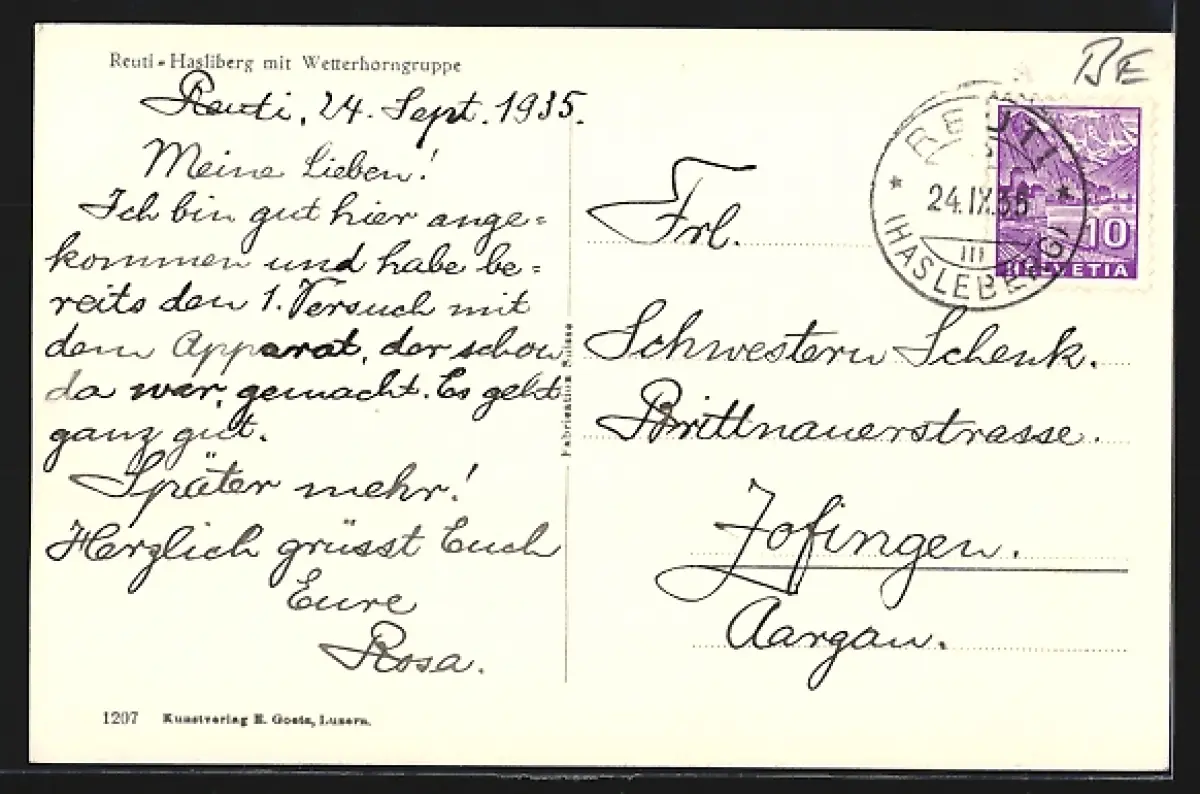 Reuti-Hasliberg mit Wetterhorngruppe
Reuti, 24. Sept. 1935.
Meine Lieben!
Ich bin gut hier ange=
kommen und habe be=
reits den 1. Versuch mit
dem Apparat, der schon
da war, gemacht. Es geht
ganz gut.
Später mehr!
Herzlich grüsst Euch
Eure
Rosa.
1207 Kunstverlag E. Goetz, Luzern.
Fabrication Suisse
BE
REUTI
24.IX.35
III
(HASLEBERG)
10
HELVETIA
Frl.
Schwestern Schenk.
Brittnauerstrasse.
Zofingen.
Aargau.